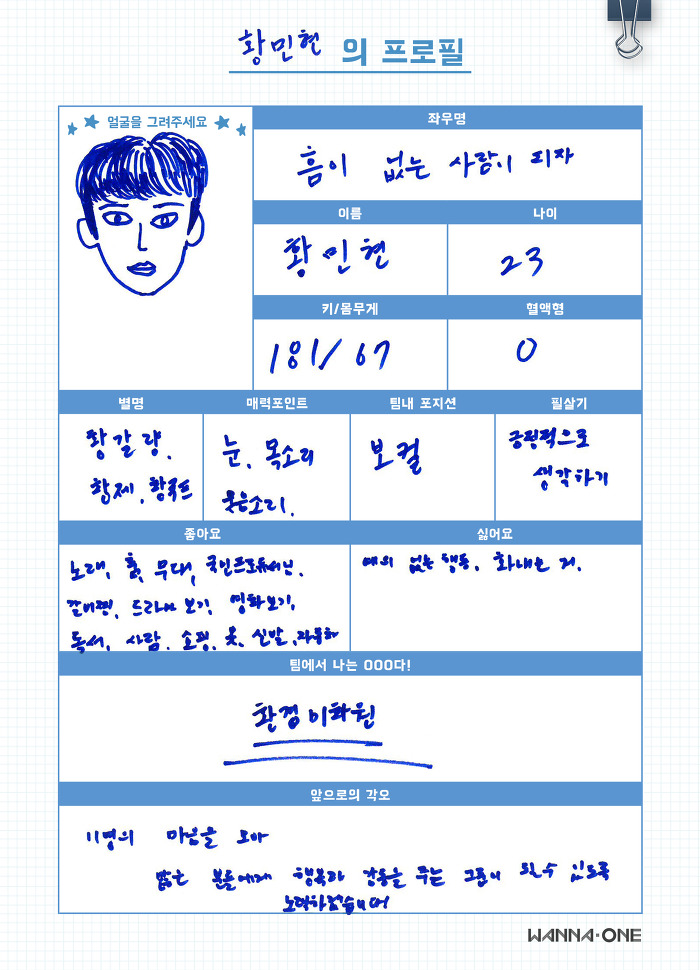 황민현 의 프로필
얼굴을 그려주세요
좌우명
흠이 없는 사람이 되자
이름
나이
황민현
23
키/몸무게
혈액형
181/67
O
별명
매력포인트
팀내 포지션
필살기
황갈량.
황제, 황국프
눈, 목소리
웃음소리.
보컬
긍정적으로
생각하기
좋아요
싫어요
노래, 춤, 무대, 국민프로듀서님,
갈비찜, 드라마 보기, 영화보기,
독서, 사람, 쇼핑, 옷, 신발,
예의 없는 행동, 화내는 거.
팀에서 나는 OOO다!
환경미화원
앞으로의 각오
11명의 마음을 모아
많은 분들에게 행복과 감동을 주는 그룹이 될 수 있도록
노력하겠습니다
WANNA·ONE